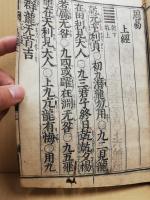 周易
上經
乾元亨利貞○初九潛龍勿用○九二見龍
在田利見大人○九三君子終日乾乾夕惕
若厲无咎○九四或躍在淵无咎○九五飛
龍在天利見大人○上九亢龍有悔○用九
見群龍无首吉